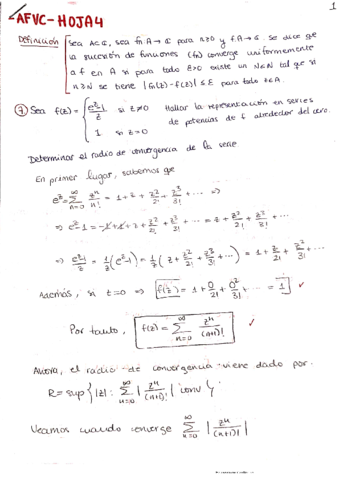 1
AFVC - HOJA4
Definición Sea A⊂ℂ, sea fn: A → ℂ para n≥0 y f: A→ℂ. Se dice que
la sucesión de funciones (fn) converge uniformemente
a f en A si para todo ε>0 existe un N∈ℕ tal que si
n≥N se tiene |fn(z)-f(z)| ≤ ε para todo z∈A.
⑦ Sea f(z) = { (e^z-1)/z si z≠0 Hallar la representación en series
1 si z=0 de potencias de f alrededor del cero.
Determinar el radio de convergencia de la serie
En primer lugar, sabemos que
e^z = ∑_{n=0}^∞ z^n/n! = 1 + z + z²/2! + z³/3! + ⋯ ⇒
⇒ e^z-1 = -1+1+z+z²/2!+z³/3!+⋯ = z+z²/2!+z³/3!+⋯
⇒ (e^z-1)/z = 1/z (e^z-1) = 1/z (z+z²/2!+z³/3!+⋯) = 1+z/2!+z²/3!+⋯
Además, si z=0 ⇒ f(z) = 1+0/2!+0²/3!+⋯ = 1 ✓
Por tanto, f(z) = ∑_{n=0}^∞ z^n/(n+1)! ✓
Ahora, el radio de convergencia viene dado por:
R = sup{|z| : ∑_{n=0}^∞ |z^n/(n+1)!| conv}
Veamos cuando converge ∑_{n=0}^∞ |z^n/(n+1)!|